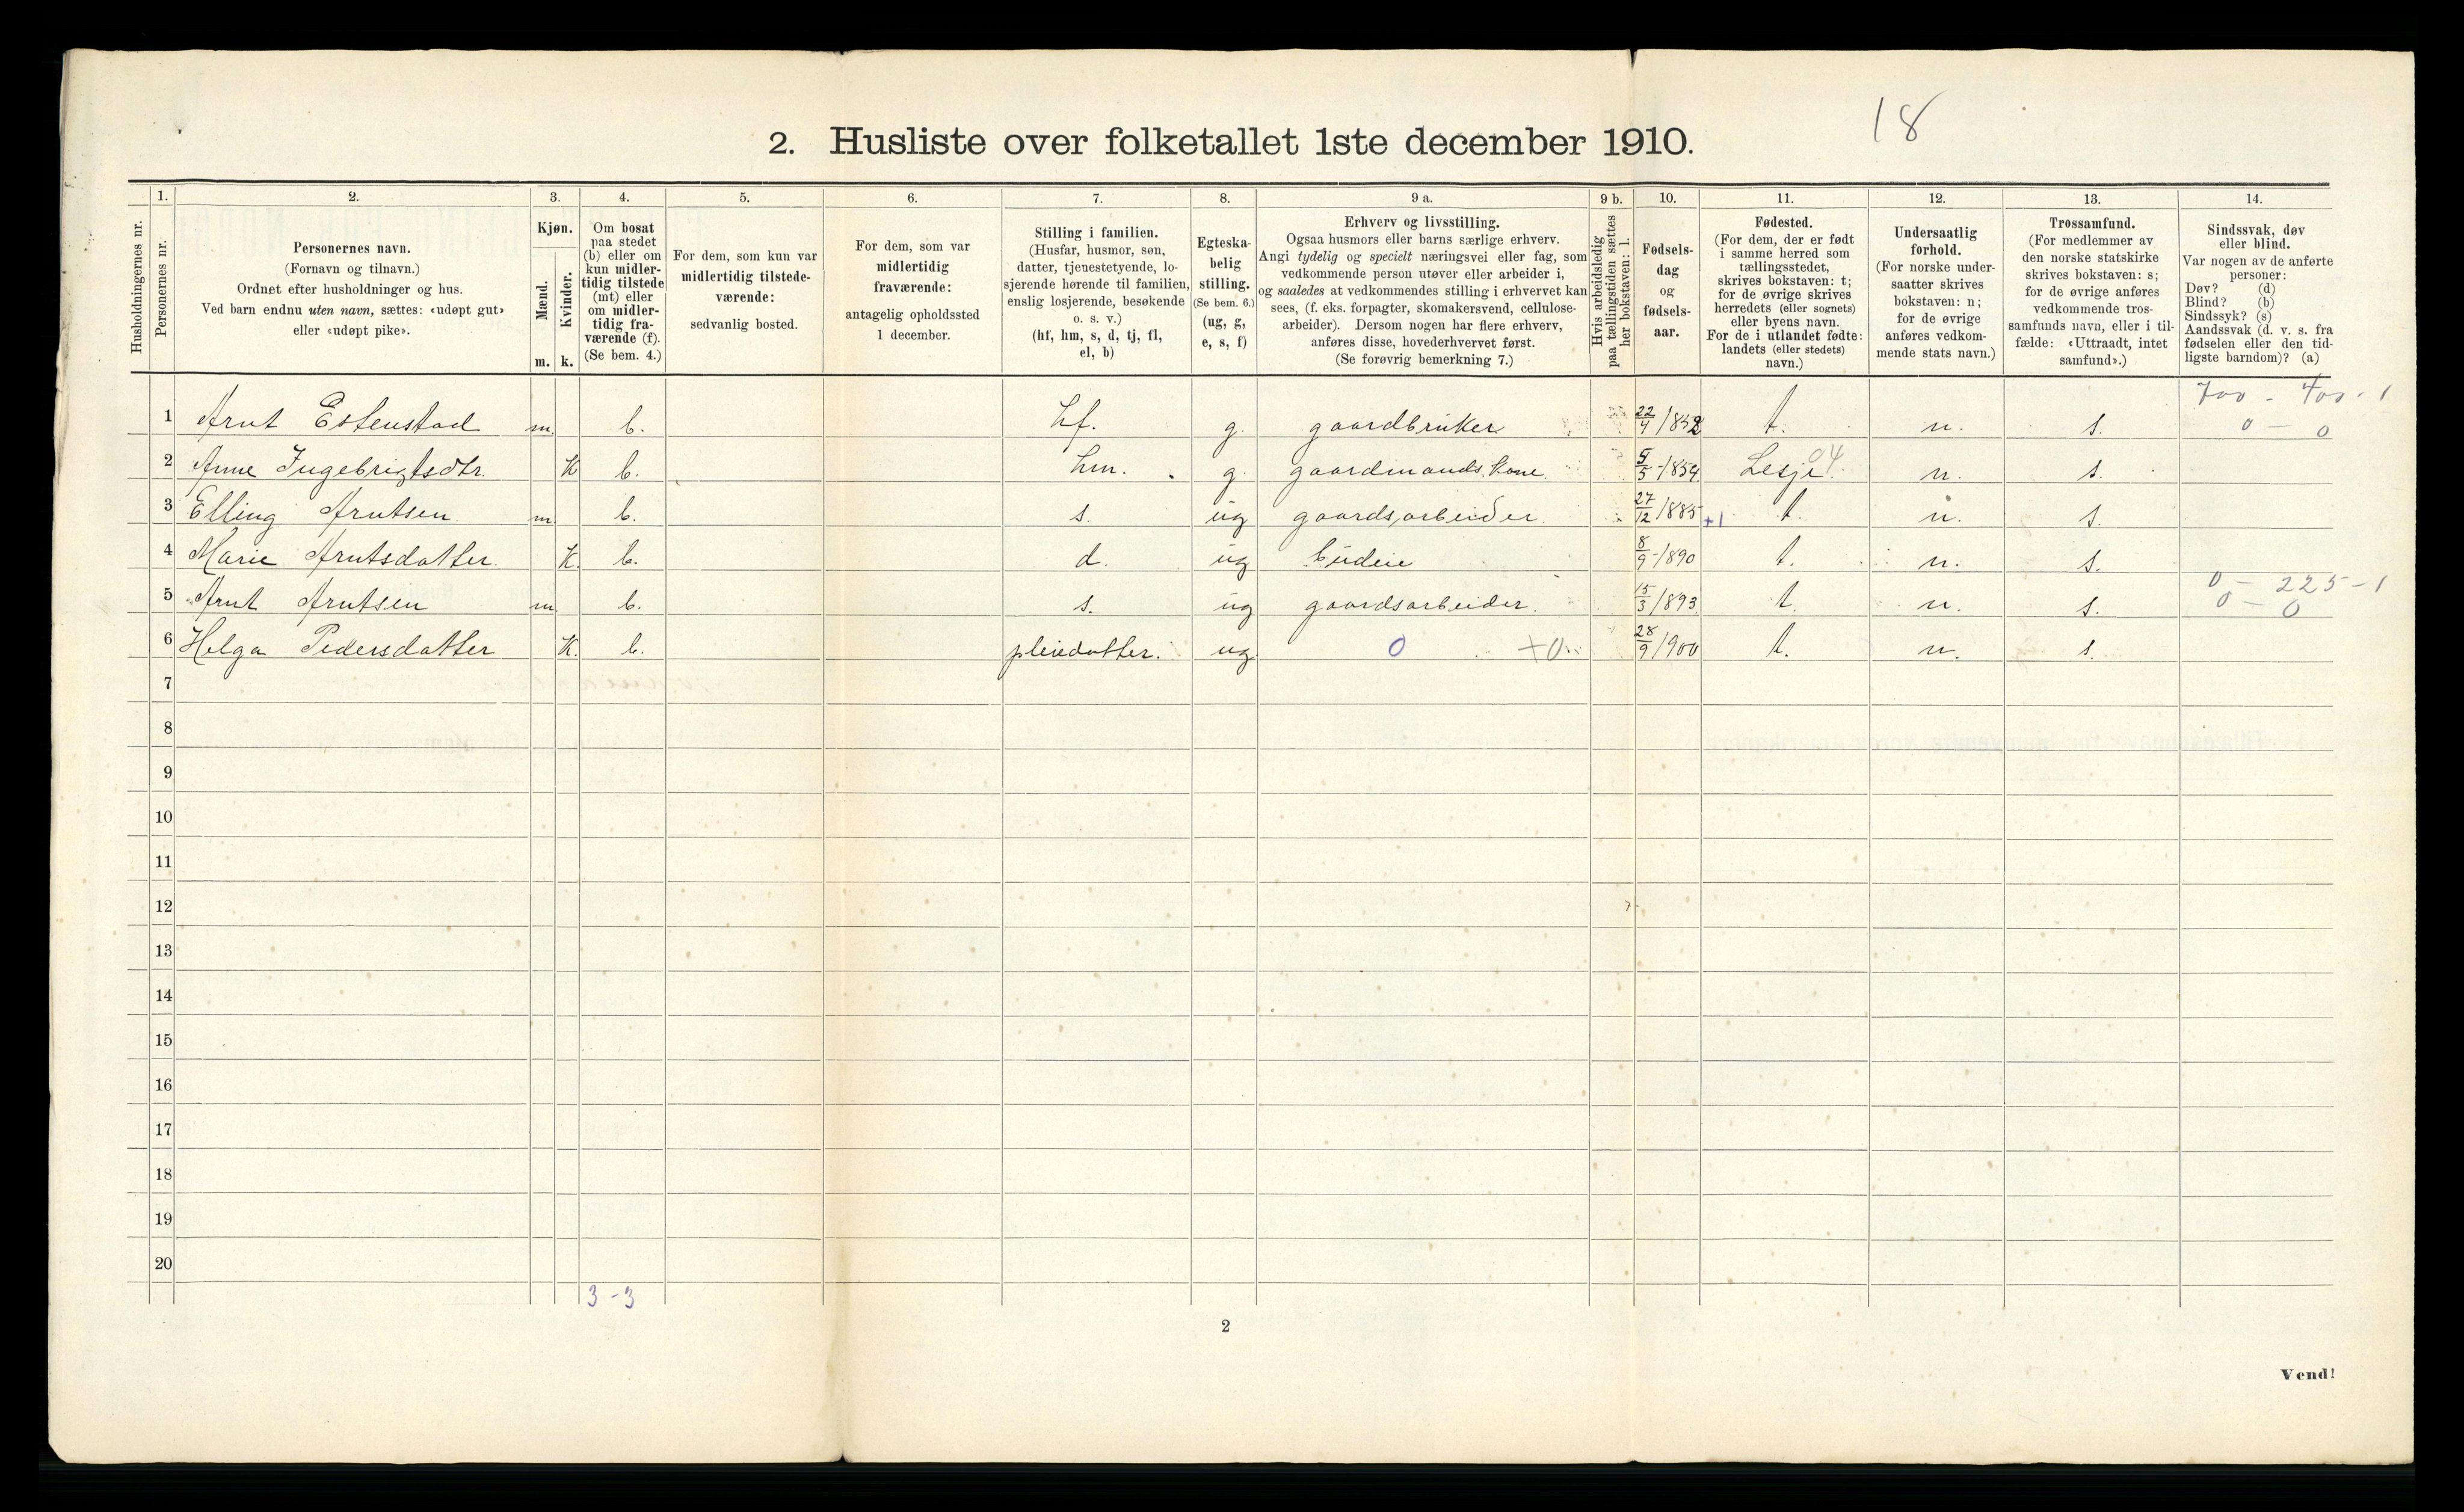 18
2. Husliste over folketallet 1ste december 1910.
Husholdningernes nr.
1. Personernes nr.
2. Personernes navn. (Fornavn og tilnavn.) Ordnet efter husholdninger og hus. Ved barn endnu uten navn, sættes: «udøpt gut» eller «udøpt pike».
3. Kjøn. Mænd. m. Kvinder. k.
4. Om bosat paa stedet (b) eller om kun midlertidig tilstede (mt) eller om midlertidig fraværende (f). (Se bem. 4.)
5. For dem, som kun var midlertidig tilstedeværende: sedvanlig bosted.
6. For dem, som var midlertidig fraværende: antagelig opholdssted 1 december.
7. Stilling i familien. (Husfar, husmor, søn, datter, tjenestetyende, losjerende hørende til familien, enslig losjerende, besøkende o. s. v.) (hf, hm, s, d, tj, fl, el, b)
8. Egteskabelig stilling. (Se bem. 6.) (ug, g, e, s, f)
9 a. Erhverv og livsstilling. Ogsaa husmors eller barns særlige erhverv. Angi tydelig og specielt næringsvei eller fag, som vedkommende person utøver eller arbeider i, og saaledes at vedkommendes stilling i erhvervet kan sees, (f. eks. forpagter, skomakersvend, cellulosearbeider). Dersom nogen har flere erhverv, anføres disse, hovederhvervet først. (Se forøvrig bemerkning 7.)
9 b. Hvis arbeidsledig paa tællingstiden sættes her bokstaven: l.
10. Fødselsdag og fødselsaar.
11. Fødested. (For dem, der er født i samme herred som tællingsstedet, skrives bokstaven: t; for de øvrige skrives herredets (eller sognets) eller byens navn. For de i utlandet fødte: landets (eller stedets) navn.)
12. Undersaatlig forhold. (For norske undersaatter skrives bokstaven: n; for de øvrige anføres vedkommende stats navn.)
13. Trossamfund. (For medlemmer av den norske statskirke skrives bokstaven: s; for de øvrige anføres vedkommende trossamfunds navn, eller i tilfælde: «Uttraadt, intet samfund».)
14. Sindssvak, døv eller blind. Var nogen av de anførte personer: Døv? (d) Blind? (b) Sindssyk? (s) Aandssvak (d. v. s. fra fødselen eller den tidligste barndom)? (a)
700 - 400 - 1
1 Arnt Estenstad m. b. hf. g. gaardbruker 22/4 1852 t. n. s. 0 - 0
2 Anne Ingebrigtsdtr. K b. hm. g. gaardmands kone 5/5 - 1854 Lesje 04. n. s.
3 Elling Arntsen m b. s. ug gaardsarbeider. 27/12 1885 +1 t. n. s.
4 Marie Arntsdatter. K. b. d. ug budeie 8/9 - 1890 t. n. s.
0 - 225 - 1
5 Arnt Arntsen m b. s. ug gaardsarbeider. 15/3 1893 t. n. s. 0 - 0
6 Helga Pedersdatter K. b. pleiedatter. ug. 0 +0 28/9 1900 t. n. s.
7
8
9
10
11
12
13
14
15
16
17
18
19
20
3 - 3
2
Vend!